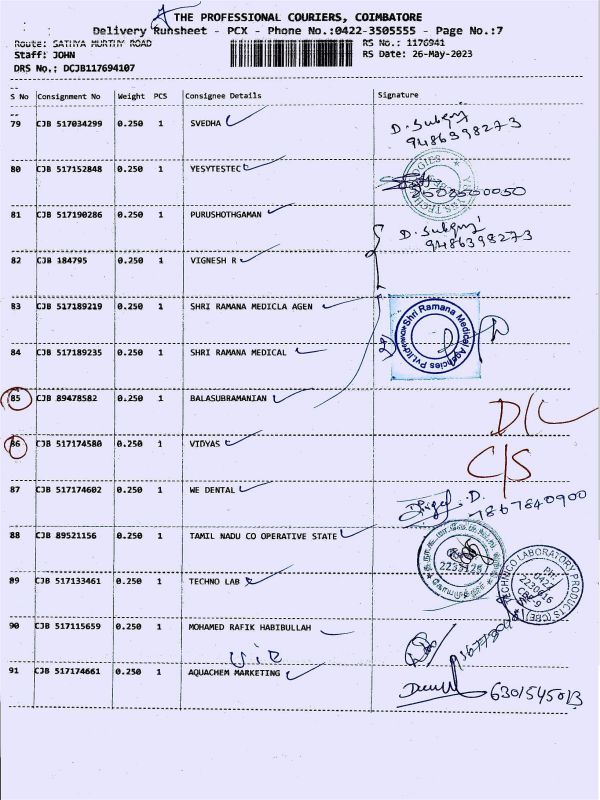 THE PROFESSIONAL COURIERS, COIMBATORE
Delivery Runsheet - PCX - Phone No.:0422-3505555 - Page No.:7
Route: SATHYA MURTHY ROAD
RS No.: 1176941
Staff: JOHN
RS Date: 26-May-2023
DRS No.: DCJB117694107
S No Consignment No Weight PCS Consignee Details Signature
79 CJB 517034299 0.250 1 SVEDHA
9486398273
80 CJB 517152848 0.250 1 YESYTESTEC
81 CJB 517190286 0.250 1 PURUSHOTHGAMAN
9486398273
82 CJB 184795 0.250 1 VIGNESH R
83 CJB 517189219 0.250 1 SHRI RAMANA MEDICLA AGEN
Shri Ramana Medical Agencies Pvt.Ltd
84 CJB 517189235 0.250 1 SHRI RAMANA MEDICAL
85 CJB 89478582 0.250 1 BALASUBRAMANIAN
D/L
86 CJB 517174580 0.250 1 VIDYAS
C/S
87 CJB 517174602 0.250 1 WE DENTAL
7867840900
88 CJB 89521156 0.250 1 TAMIL NADU CO OPERATIVE STATE
89 CJB 517133461 0.250 1 TECHNO LAB
LABORATORY PRODUCTS (CBE)
Ph:
0422
90 CJB 517115659 0.250 1 MOHAMED RAFIK HABIBULLAH
91 CJB 517174661 0.250 1 AQUACHEM MARKETING